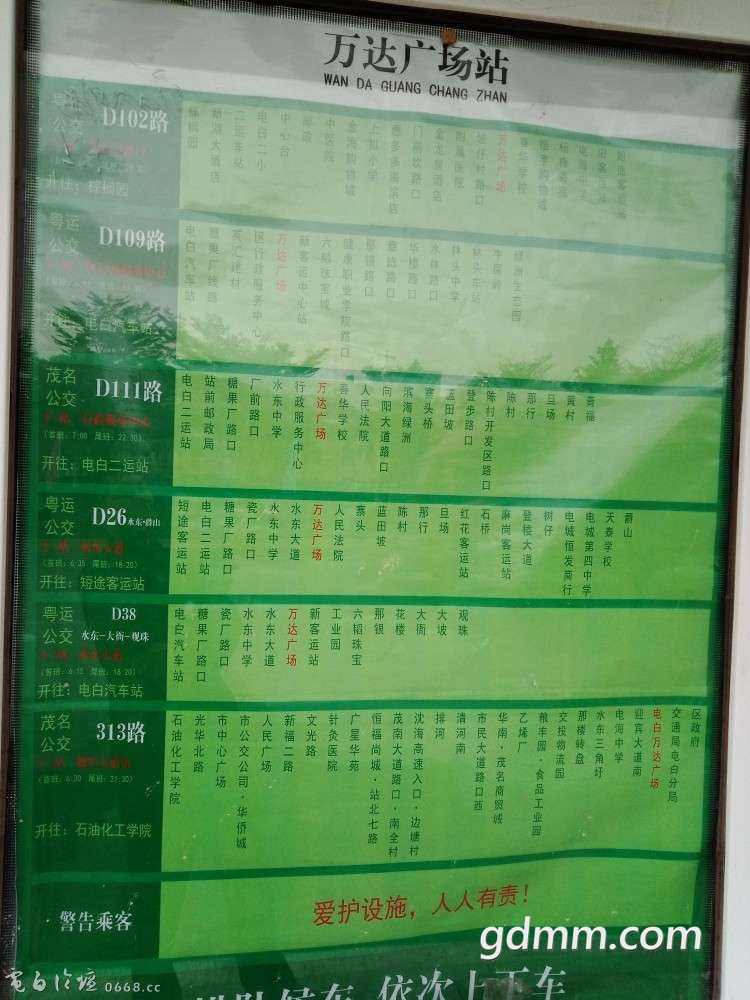 万达广场站
WAN DA GUANG CHANG ZHAN
粤运公交 D102路
开往：棕榈园
棕榈园
二运车站
电白二小
中心台
邮政
中医院
金海购物城
上排小学
门前坎路口
金龙泉酒店
附属医院
万达广场
春华学校
粤运公交 D109路
开往：电白汽车站
电白汽车站
糖果厂线路
英汇建材
区行政服务中心
万达广场
新客运中心站
六韬珠宝城
健康职业学院路口
那银路口
章班路口
华楼路口
水林路口
林头中学
林头车站
牛屎岭
绿洲生态园
茂名公交 D111路
(首班: 7:00 尾班: 22:30)
开往：电白二运站
电白二运站
站前邮政局
糖果厂路口
厂前路口
水东中学
行政服务中心
万达广场
春华学校
人民法院
向阳大道路口
滨海绿洲
寨头桥
蓝田坡
登步路口
陈村开发区路口
陈村
那行
旦场
黄村
青福
粤运公交 D26 水东-爵山
(首班: 6:35 尾班: 18:20)
开往：短途客运站
短途客运站
电白二运站
糖果厂路口
瓷厂路口
水东中学
水东大道
万达广场
人民法院
寨头
蓝田坡
陈村
那行
旦场
红花客运站
石桥
麻岗客运站
登楼大道
树仔
电城恒发商行
电城第四中学
天泰学校
爵山
粤运公交 D38
水东-大衙-观珠
(首班: 6:15 尾班: 18:20)
开往：电白汽车站
电白汽车站
糖果厂路口
瓷厂路口
水东中学
水东大道
万达广场
新客运站
工业园
六韬珠宝
那银
花楼
大衙
大坡
观珠
茂名公交 313路
(首班: 6:30 尾班: 21:30)
开往：石油化工学院
石油化工学院
光华北路
市中心广场
市公交公司·华侨城
人民广场
新福二路
文光路
针灸医院
广星华苑
恒福尚城·站北七路
茂南大道路口·南全村
沈海高速入口·边塘村
排河
清河南
市民大道路口西
华南·茂名商贸城
乙烯厂
粮丰园·食品工业园
交投物流园
那楼转盘
水东三角圩
电海中学
迎宾大道南
电白万达广场
交通局电白分局
区政府
警告乘客
爱护设施，人人有责！
gdmm.com
依次上下车
电白论坛 0668.cc